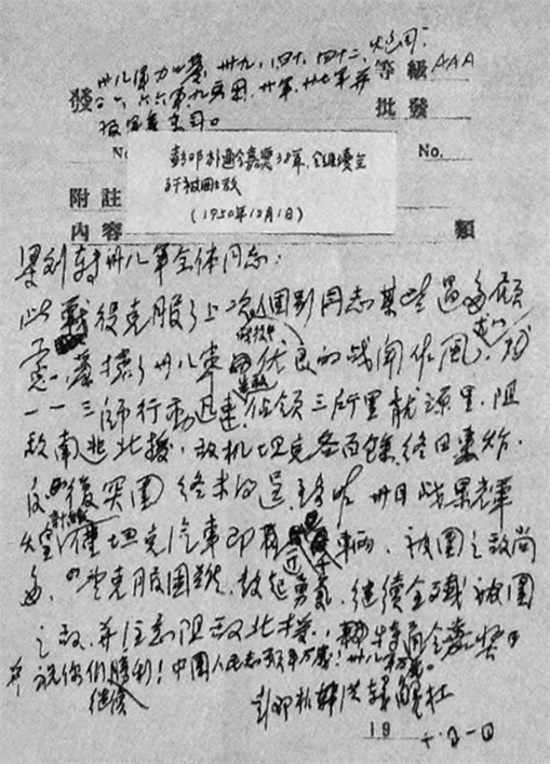 卅八军 卅九、四十、四十二
發 等級 AAA
六六军、九兵团、廿军、廿七军并
批發
No. No.
彭邓朴通令嘉奖38军,
附註 于被围之敌
(1950年12月1日)
内容 類
梁刘转卅八军全体同志:
此战役克服了上次个别同志某些过多顾
虑,发揮了卅八军优良的战闹作風,尤以
一一三师行动迅速,占领三所里龙源里,阻
敌南逃北援,敌机坦克各百餘,终日轰炸,
反復突围终未得逞,至昨卅日战果輝
煌,计缴仅坦克汽車即近千輛,被围之敌尚
多,望克服困难,鼓起勇氣,继续全殲被围
之敌,并注意阻敌北援,特通令嘉奖
并祝你们继续勝利!中国人民志愿军万歲!卅八军万歲。
彭邓朴韩洪解杜
19